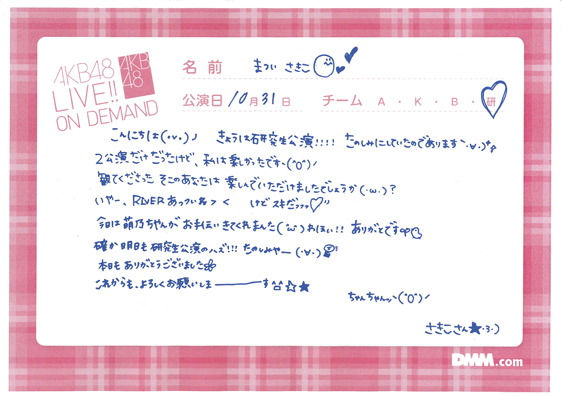 AKB48
LIVE!!
ON DEMAND
AKB
48
名前 まつい さきこ
公演日 10月31日 チーム A・K・B・研
こんにちは(・∨・)ノ きょうは研究生公演!!!! たのしみにしていたのであります
2公演だけだったけど、私は楽しかったですヽ(^o^)ノ
観てくださった そこのあなたは 楽しんでいただけましたでしょうか(・ω・)?
いやー、RIVERあっついね>< けどスキだァァァ♡
今日は萌乃ちゃんが おまねいきてくれました('ω') ありがとです
確か明日も研究生公演のハズ!!! たのしみやー(・∀・)
本日も ありがとうございました
これからも、よろしくお願いしまーーーす ☆★
ちゃんちゃんっヽ(^o^)ノ
さきこさん★・3・)
DMM.com